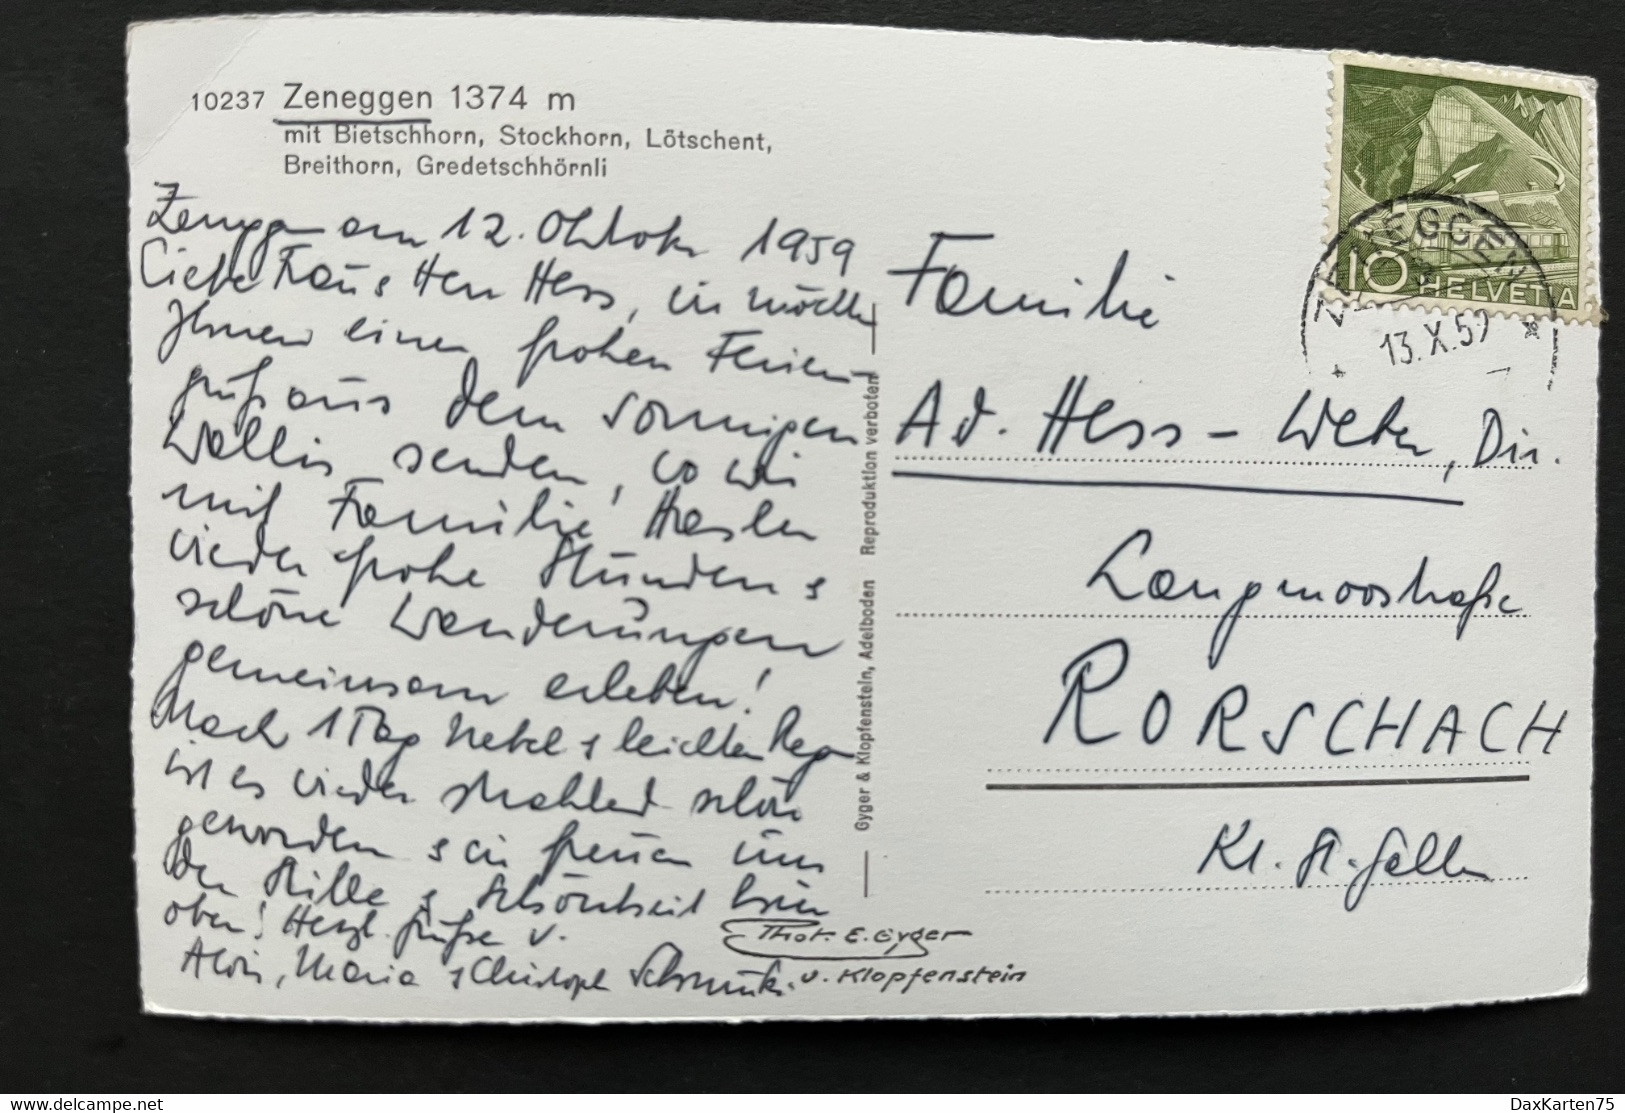 10237 Zeneggen 1374 m
mit Bietschhorn, Stockhorn, Lötschent,
Breithorn, Gredetschhörnli
Zeneggen am 12. Oktober 1959
Liebe Frau & Herr Hess, wir möchten
Ihnen einen frohen Ferien-
gruß aus dem sonnigen
Wallis senden, wo wir
mit Familie Hasler
wieder frohe Stunden &
schöne Wanderungen
gemeinsam erleben!
Nach 1 Tag Nebel & leichten Regen
ist es wieder strahlend schön
geworden & wir freuen uns
der Stille & Schönheit hier
oben! Herzl. Grüße v.
Alois, Maria & Christoph
Phot. E. Gyger
u. Klopfenstein
Gyger & Klopfenstein, Adelboden Reproduktion verboten
10 HELVETIA
ZENEGGEN
13.X.59
Familie
Ad. Hess-Weber, Dir.
Langmoosstraße
RORSCHACH
Kt. St. Gallen
DaxKarten75
https://www.delcampe.net